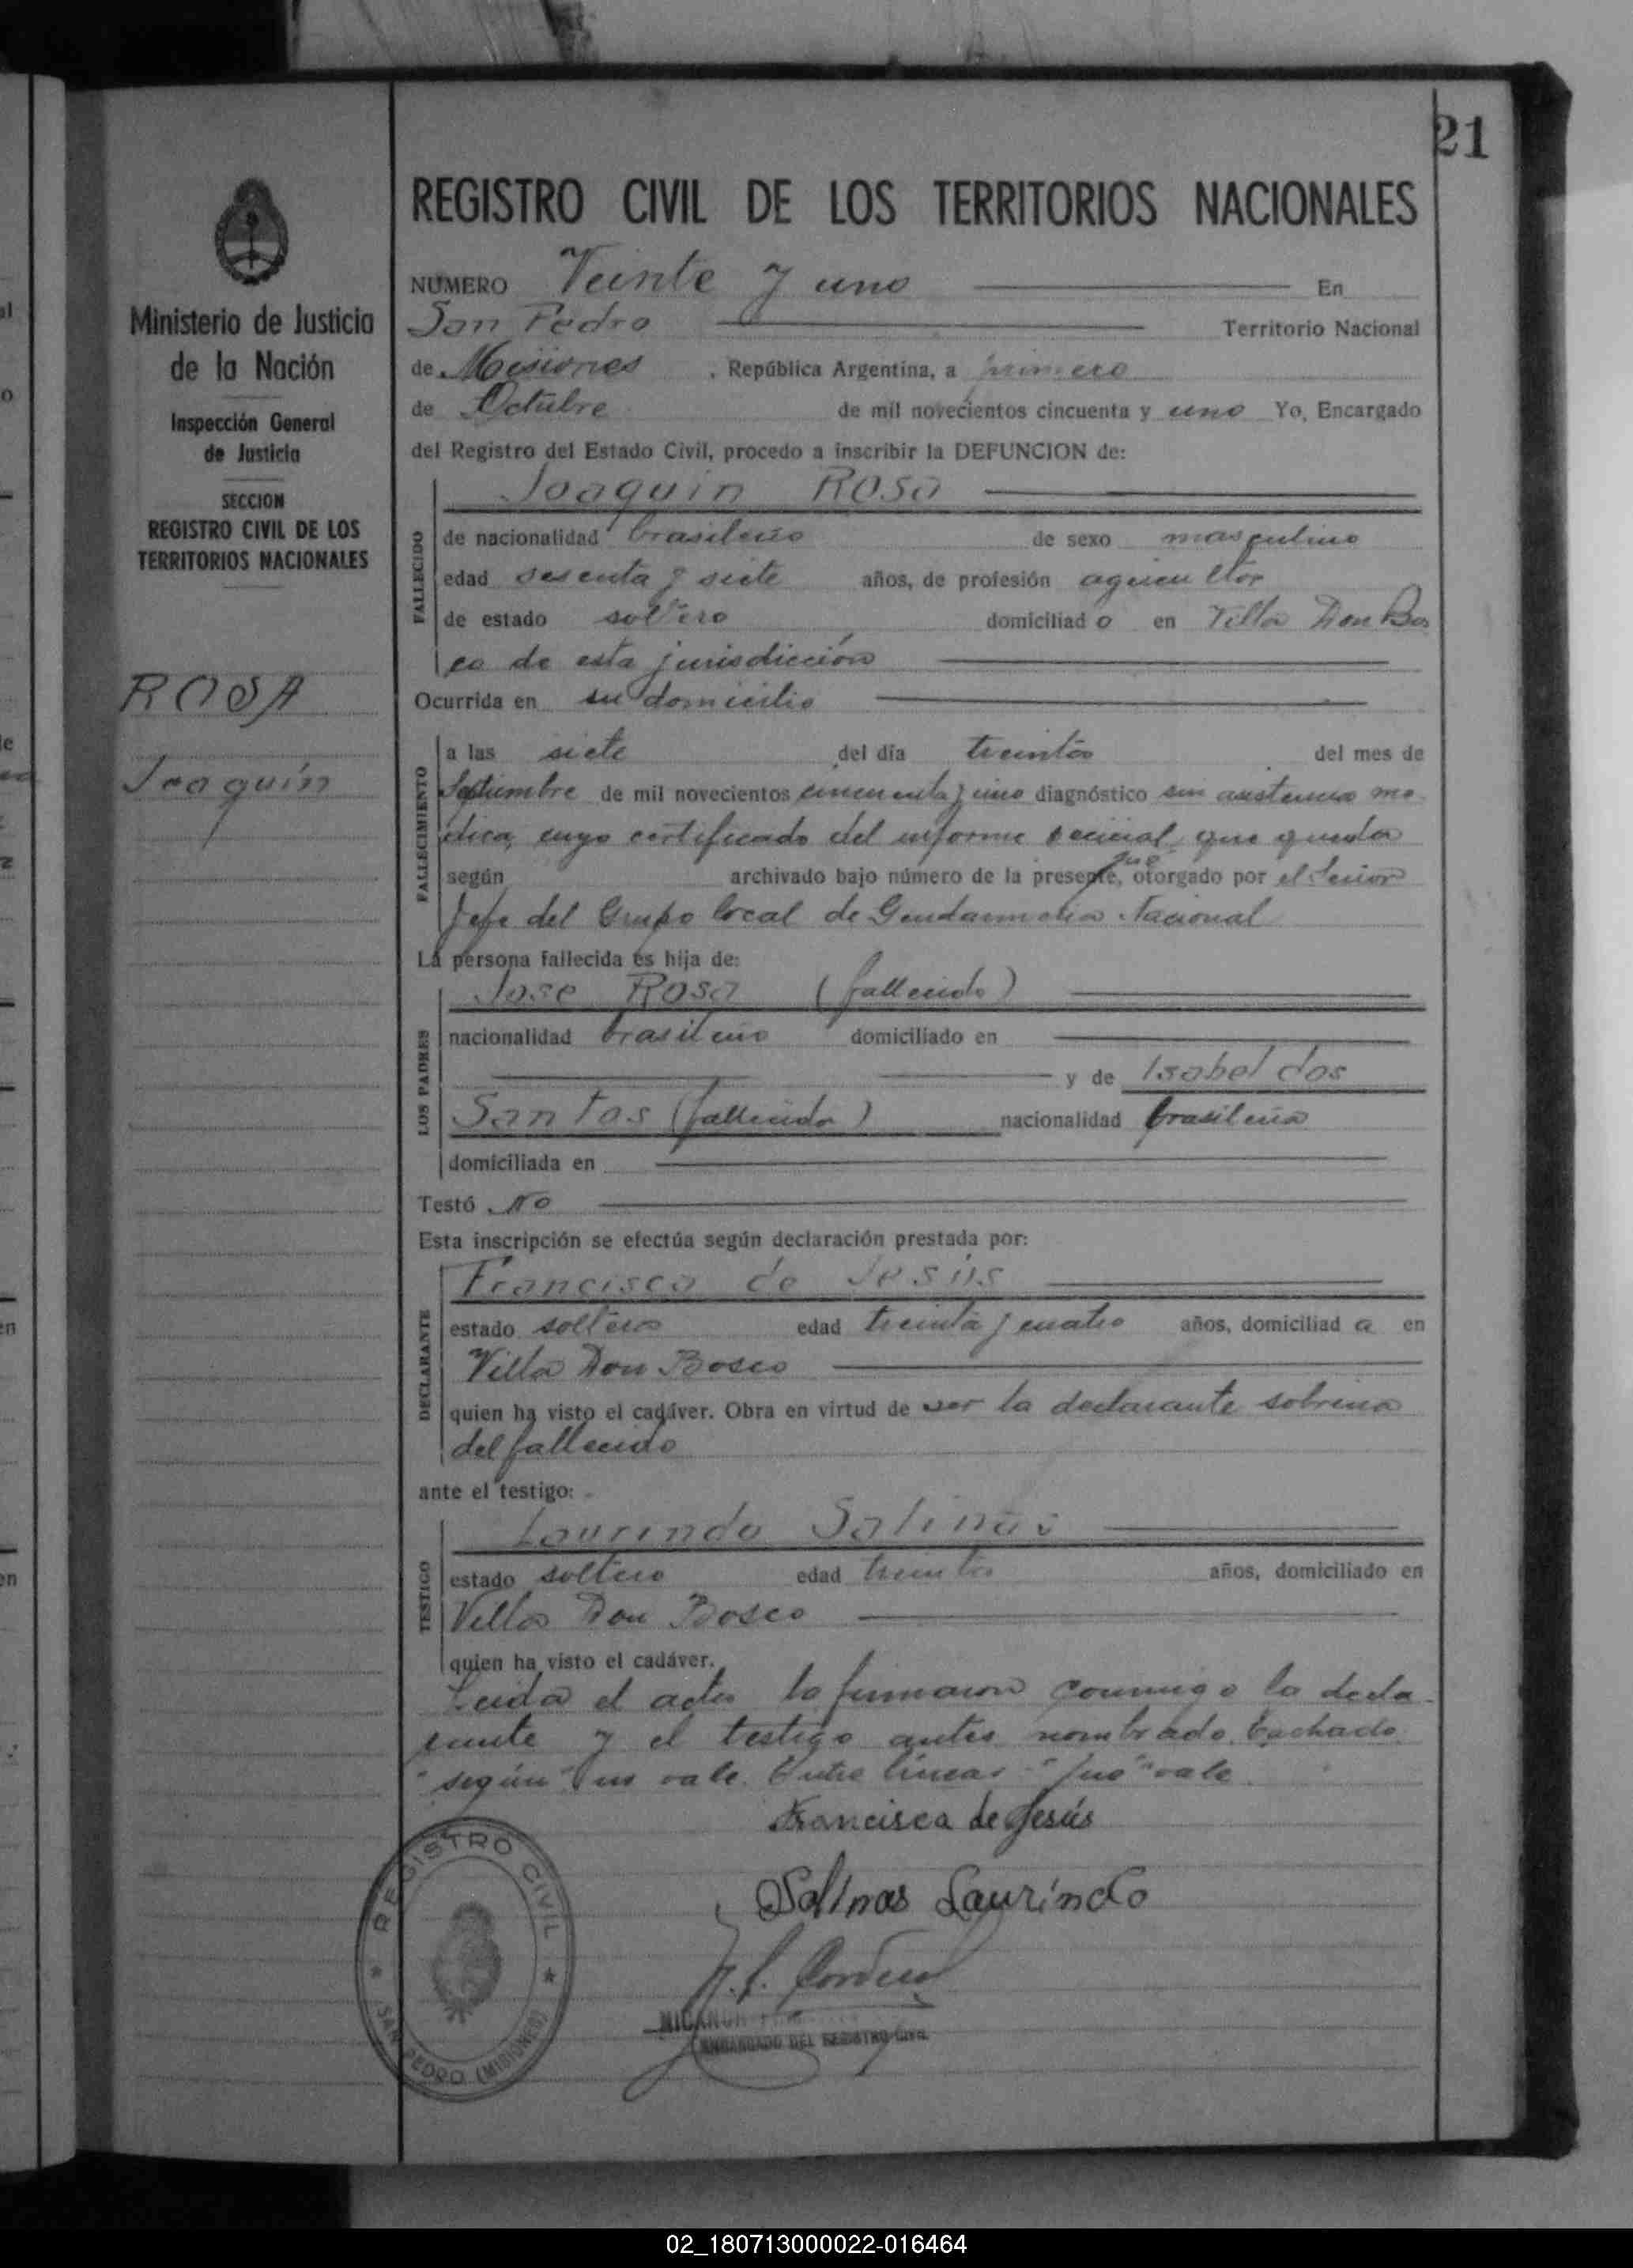 21
REGISTRO CIVIL DE LOS TERRITORIOS NACIONALES
Ministerio de Justicia
de la Nación
Inspección General
de Justicia
SECCION
REGISTRO CIVIL DE LOS
TERRITORIOS NACIONALES
ROSA
Joaquín
NUMERO Veinte y uno En
San Pedro Territorio Nacional
de Misiones , República Argentina, a primero
de Octubre de mil novecientos cincuenta y uno Yo, Encargado
del Registro del Estado Civil, procedo a inscribir la DEFUNCION de:
FALLECIDO
Joaquin Rosa
de nacionalidad brasileño de sexo masculino
edad sesenta y siete años, de profesión agricultor
de estado soltero domiciliado en Villa Don Bos
co de esta jurisdicción
Ocurrida en su domicilio
FALLECIMIENTO
a las siete del día treinta del mes de
Septiembre de mil novecientos cincuenta y uno diagnóstico sin asistencia me
dica, cuyo certificado del informe que queda
según archivado bajo número de la presente, fue otorgado por el Señor
Jefe del Grupo local de Gendarmeria Nacional
La persona fallecida es hija de:
LOS PADRES
Jose Rosa (fallecido)
nacionalidad brasileño domiciliado en
y de Isabel dos
Santos (fallecida) nacionalidad brasileña
domiciliada en
Testó No
Esta inscripción se efectúa según declaración prestada por:
DECLARANTE
Francisca de Jesús
estado soltera edad treinta y cuatro años, domiciliada en
Villa Don Bosco
quien ha visto el cadáver. Obra en virtud de ser la declarante sobrina
del fallecido
ante el testigo:
TESTIGO
Laurindo Salinas
estado soltero edad treinta años, domiciliado en
Villa Don Bosco
quien ha visto el cadáver.
Leida el acta la firmaron conmigo la decla-
rante y el testigo antes nombrado. Tachado
"según" no vale. Entre líneas "fue" vale
Francisca de Jesús
Salinas Laurindo
ENCARGADO DEL REGISTRO CIVIL
REGISTRO CIVIL
SAN PEDRO (MISIONES)
02_180713000022-016464